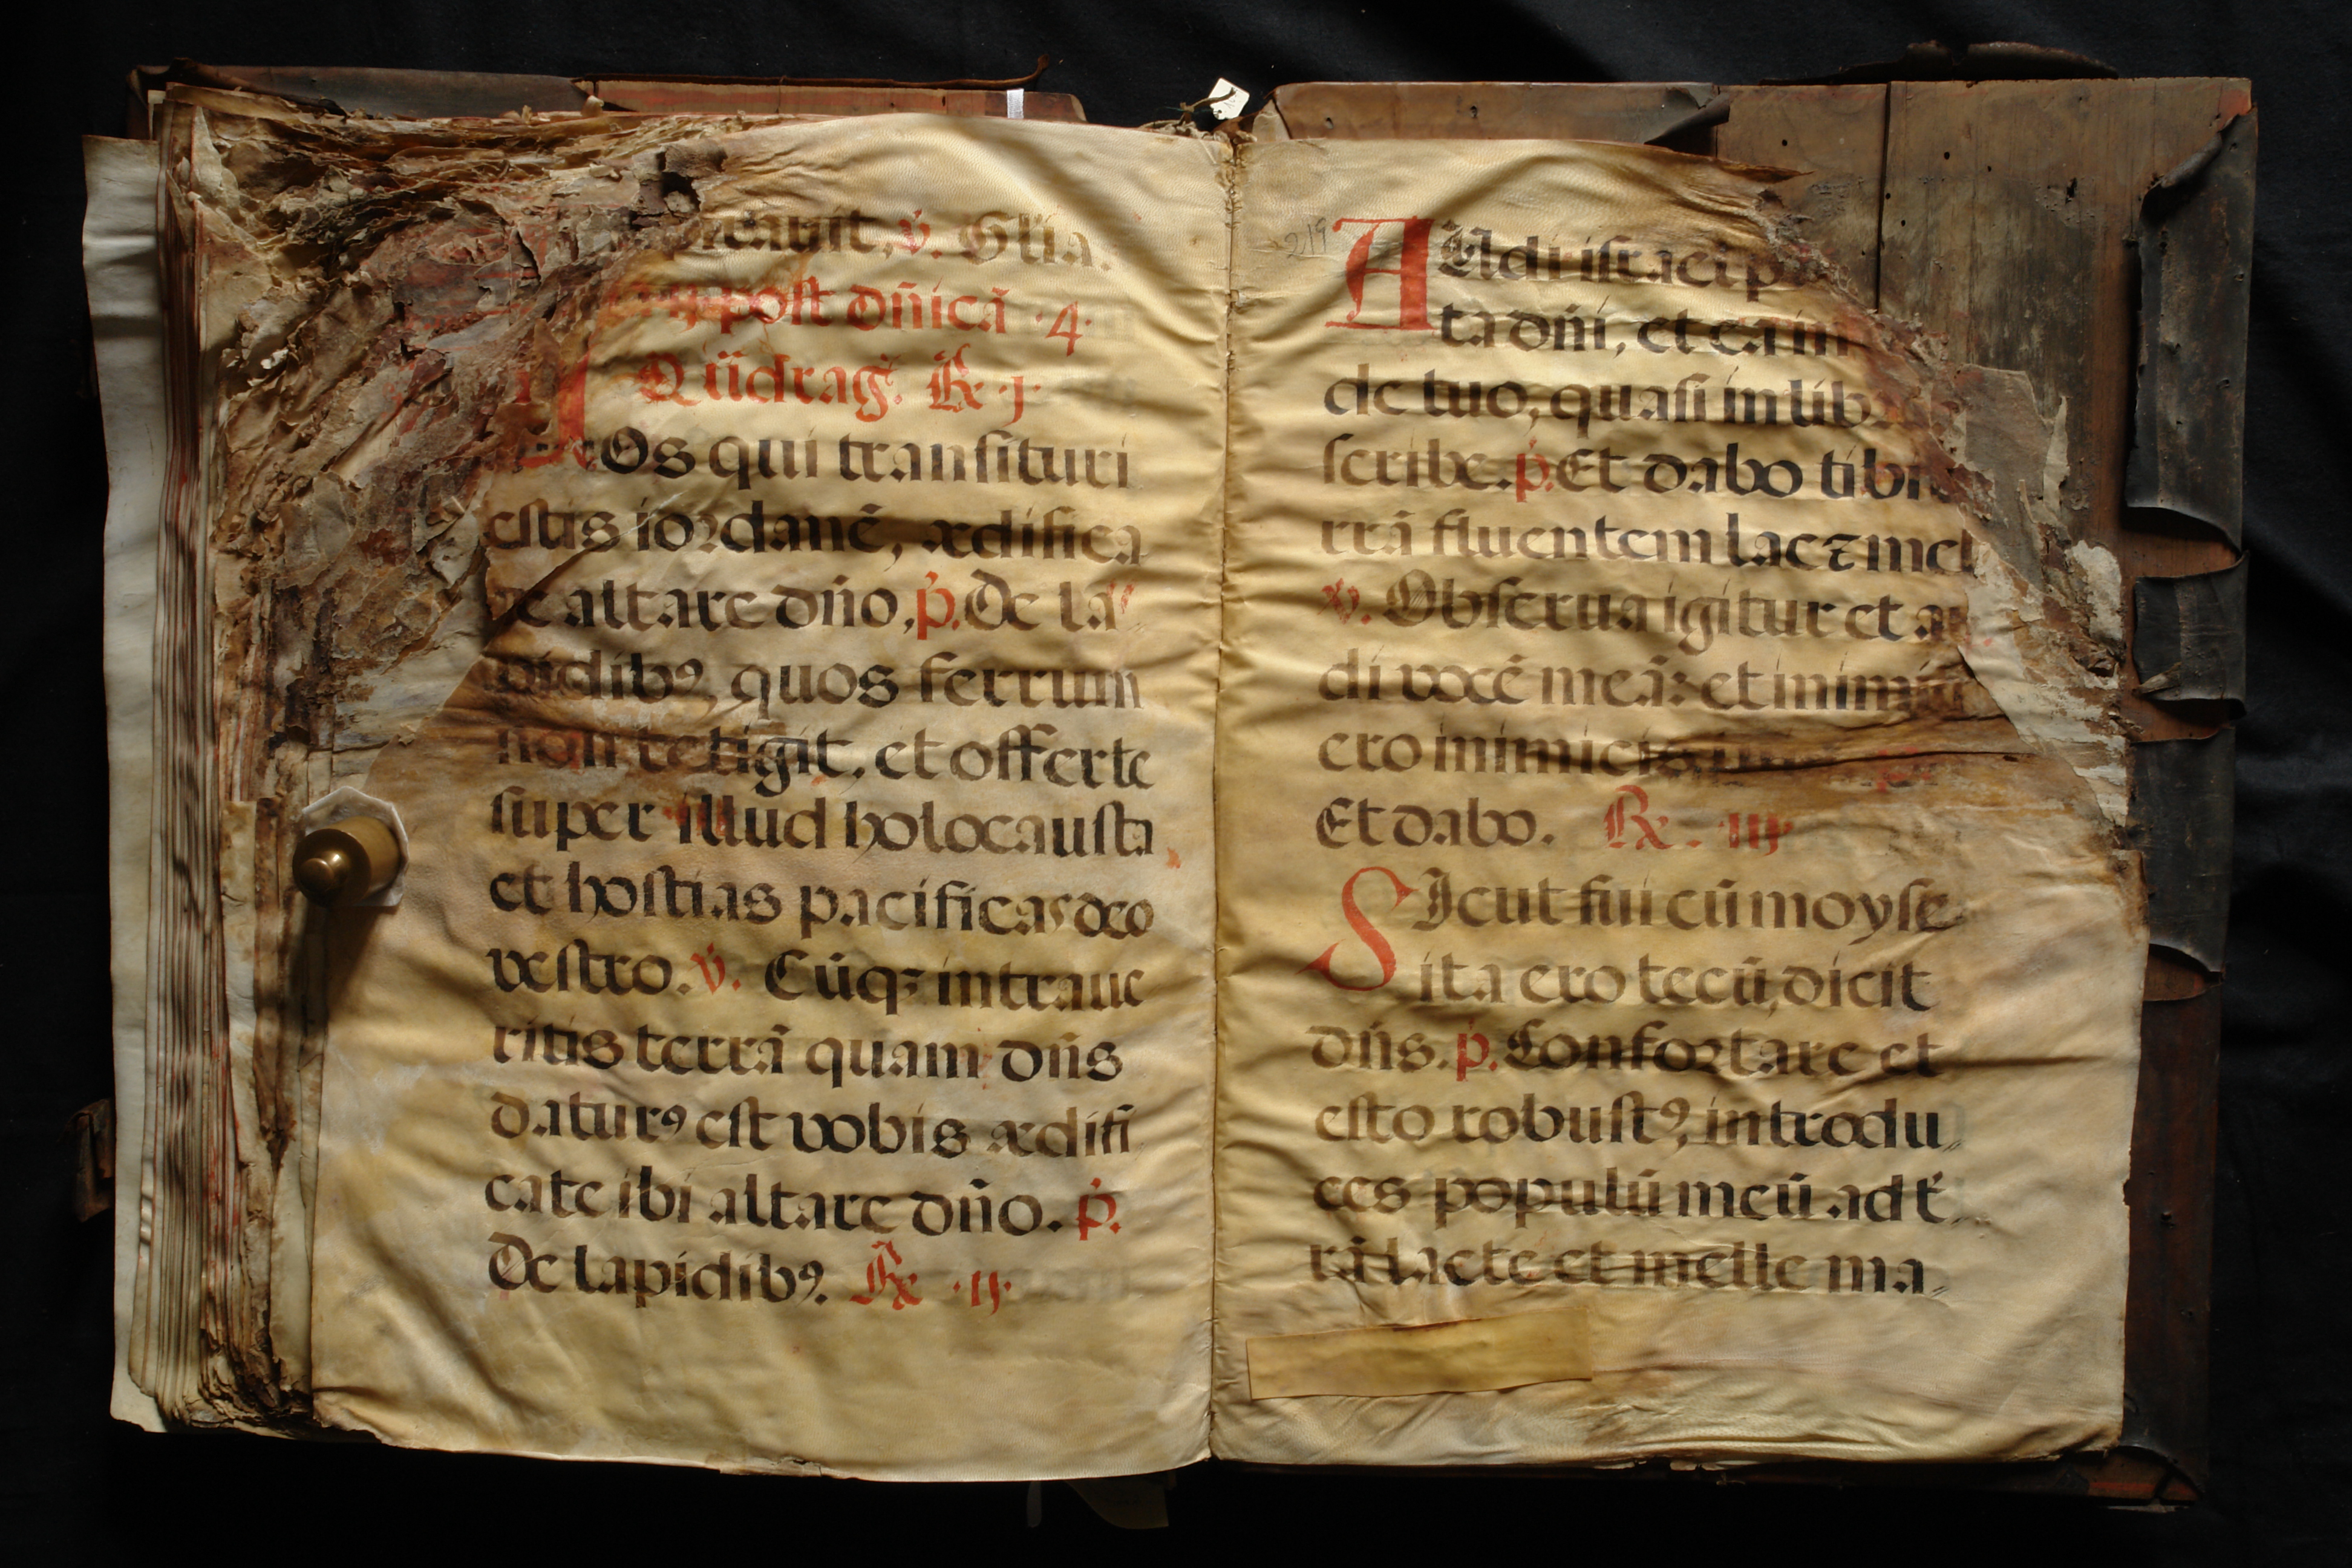 tauit, v̇. Gl̃ia.
post dñicã ·4·
Qũdrag̃. ℟ ·j·
Os qui transituri
estis iordanẽ, ædifica
te altare dño, p̓. De la〃
pidibꝰ, quos ferrum
non tetigit, et offerte
super illud holocausta
et hostias pacificas deo
vestro. v̇. Cũqꝫ intraue
ritis terrã quam dñs
daturꝰ est vobis ædifi
cate ibi altare dño. p̓.
De lapidibꝰ. ℟ ·ij·
219
AUdi israel p
ta dñi, et ea in
de tuo, quasi in lib
scribe. p̓. Et dabo tibi
rrã fluentem lac ⁊ mel
v̇. Obserua igitur et au
di vocẽ meã: et inimic
ero inimicis
Et dabo. ℟. iij
SIcut fui cũ moyse
ita ero tecũ, dicit
dñs. p̓. Confortare et
esto robustꝰ, introdu〃
ces populũ meũ ad t̃〃
rã lacte et melle ma〃